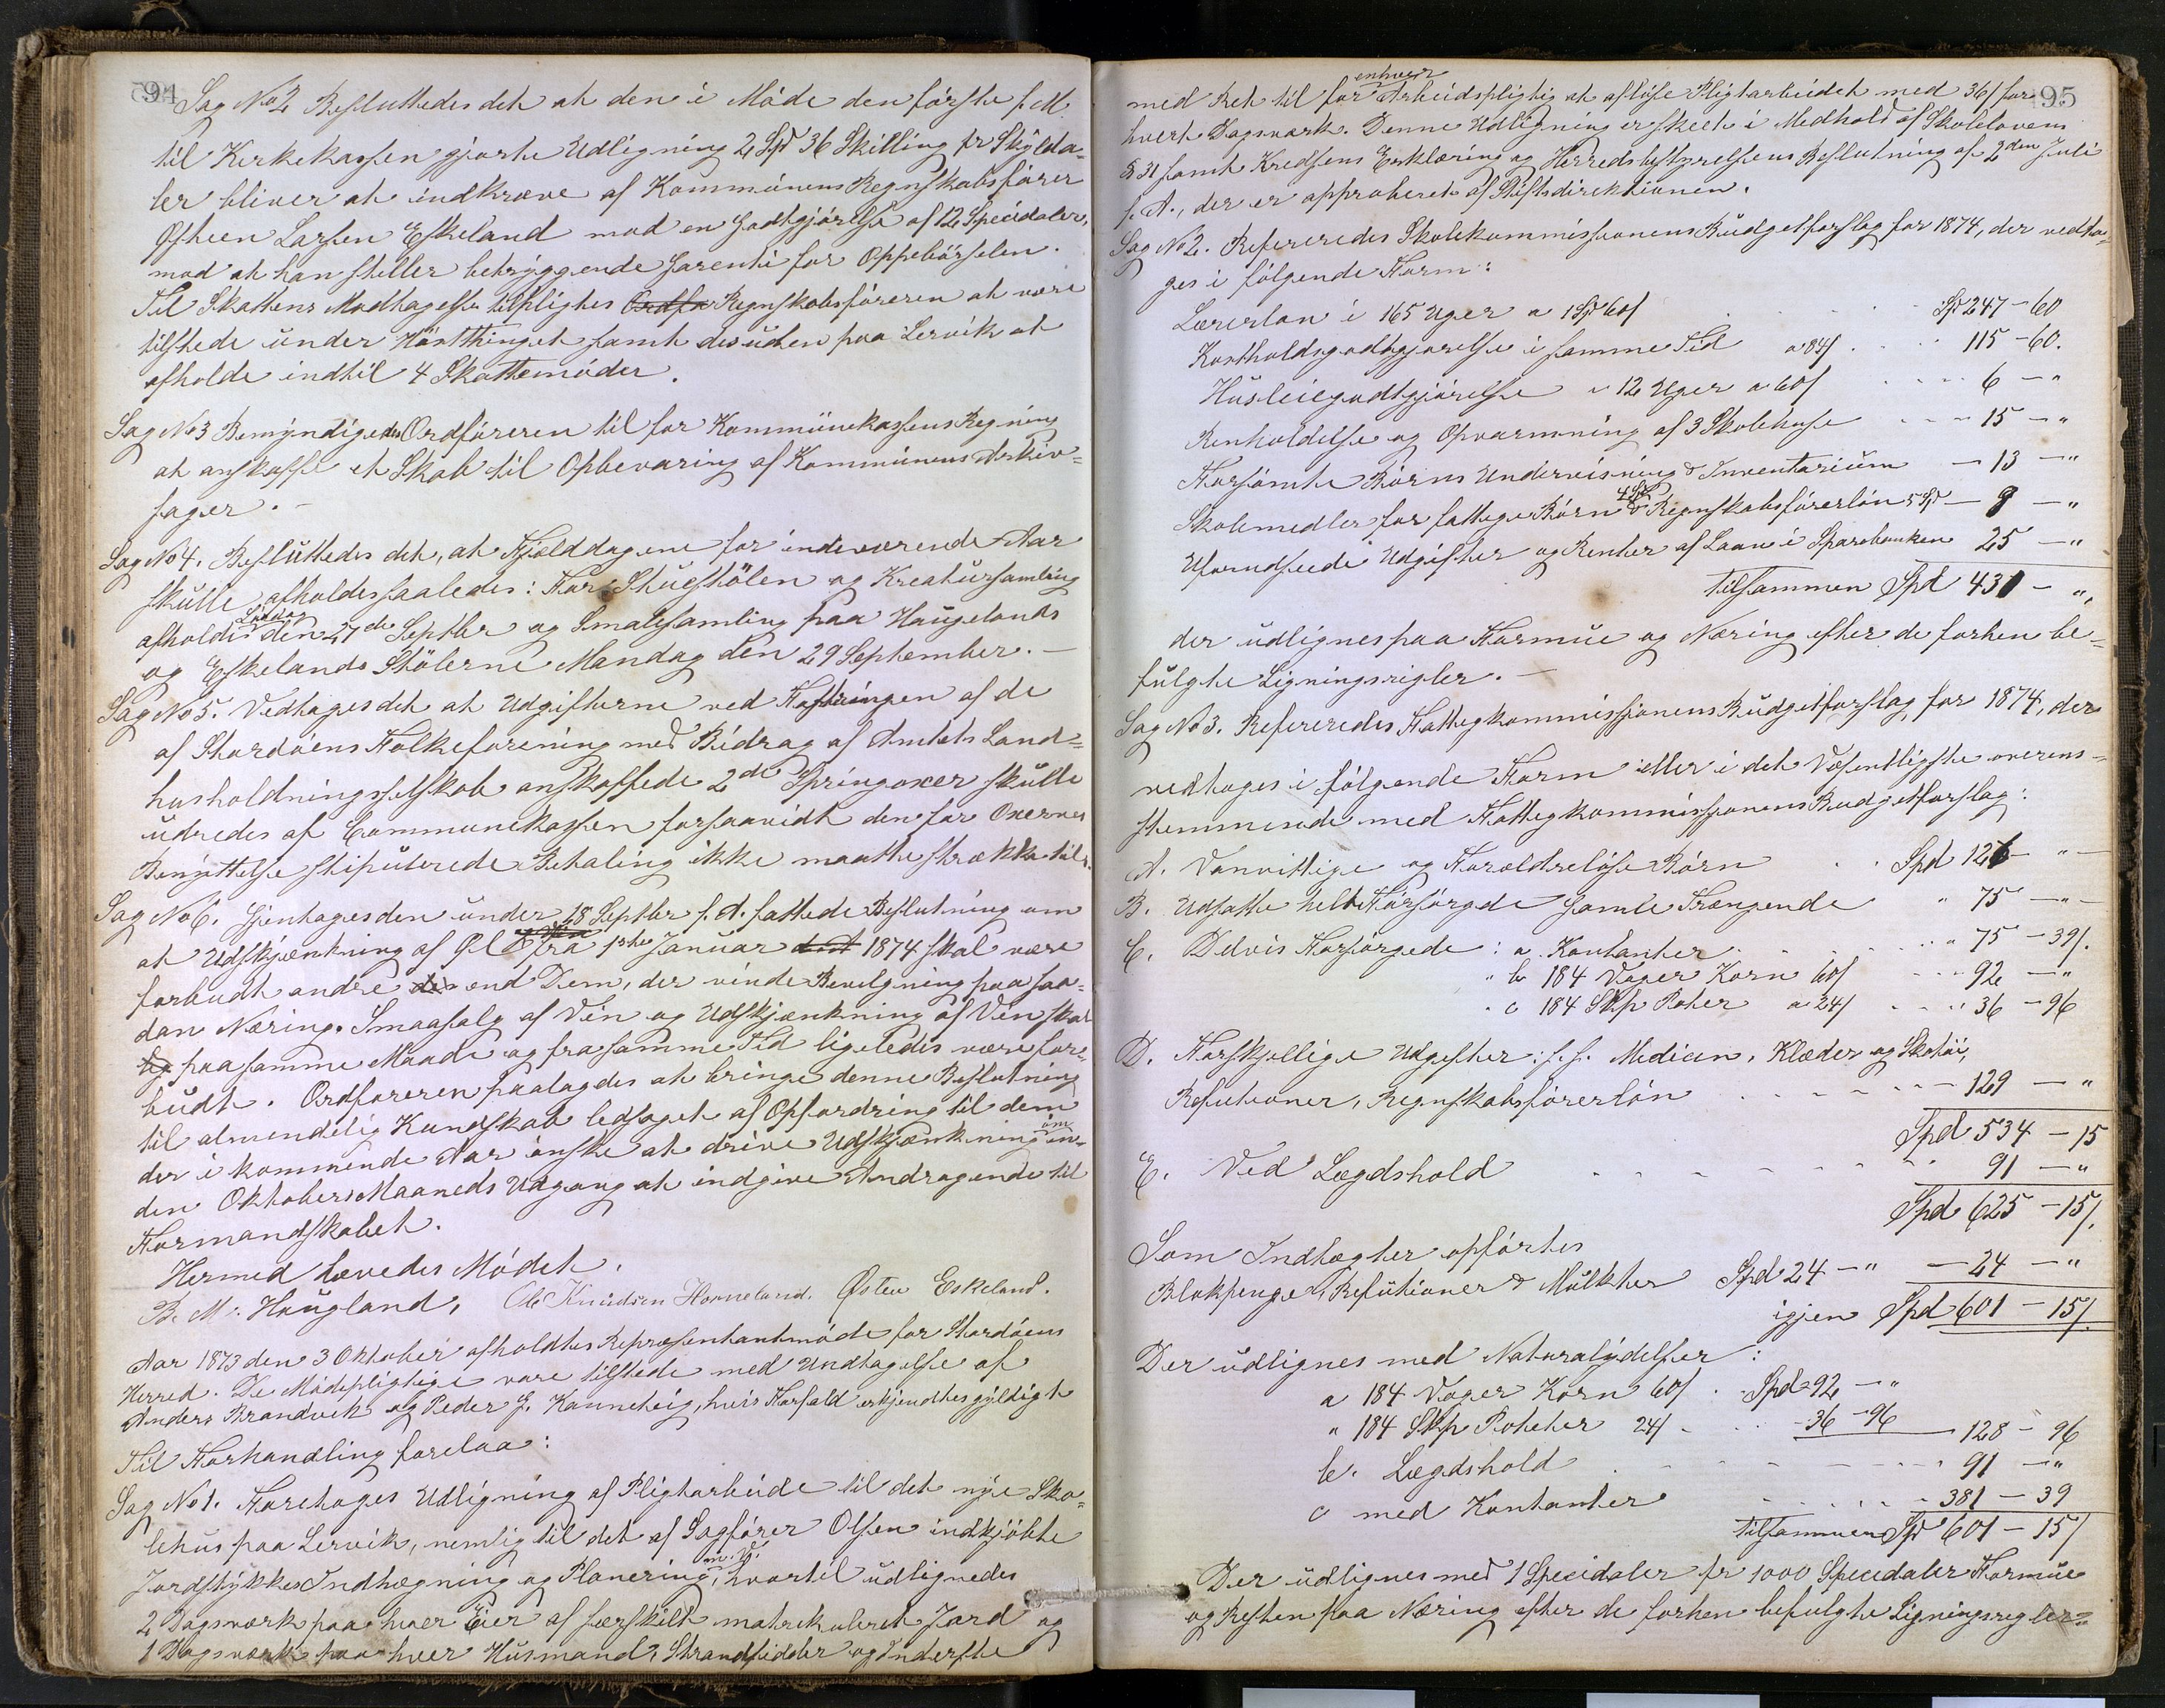 94
Sag No 2 Besluttedes det at den i Möde den förste f. M.
til Kirkekassen gjorte Udligning 2 Spd 36 Skilling pr Skylda-
ler bliver at indkræve af Kommunens Regnskabsfører
Østen Larsen Eskeland mod en Godtgjørelse af 12 Speciedaler,
mod at han stiller betryggende Garenti for Oppebörselen.
Til Skattens Modtagelse tilpligtes Ordfø Regnskabsføreren at være
tilstede under Hösttinget samt desuden paa Lervik at
afholde indtil 4 Skattemöder.
Sag No 3 Bemyndigedes Ordføreren til for Kommunekassens Regning
at anskaffe et Skab til Opbevaring af Kommunens Arkiv-
sager.-
Sag No 4. Besluttedes det, at Fjelddagene for indeværende Aar
skulle afholdes saaledes: For Stuestölen og Kreatursamling
afholdes Lördag den 27de Septbr og Smalesamling paa Haugelands
og Eskelands Stölerne Mandag den 29 September.-
Sag No 5. Vedtages det at Udgifterne ved Fostringen af de
af Stordöens Folkeforening med Bidrag af Amtets Land-
husholdningsselskab anskaffede 2de Springoxer skulle
udredes af Communekassen forsaavidt den for Oxernes
Benyttelse stipulerede Betaling ikke maatte strække til.
Sag No 6. Gjentages den under 18 Septbr f. A. fattede Beslutning om
at Udskjænkning af Øl fra 1ste Januar d. A. 1874 skal være
forbudt andre de end Dem, der vinde Bevilgning paa saa-
dan Næring. Smaasalg af Vin og Udskjænkning af Vin skal
og paa samme Maade og fra samme Tid ligeledes være for-
budt. Ordføreren paalagdes at bringe denne Beslutning
til almendelig Kundskab ledsaget af Opfordring til dem
der i kommende Aar önske at drive Udskjænkning om in-
den Oktober Maaneds Udgang at indgive Andragende til
Formandskabet.
Hermed hævedes Mödet.
B. M. Haugland, Ole Knudsen Horneland. Østen Eskeland.
Aar 1873 den 3 Oktober afholdtes Repræsentantmöde for Stordöens
Herred. De Mödepligtige vare tilstede med Undtagelse af
Anders Brandvik og Peder J. Kannelsig, hvis Forfald erkjendtes gyldigt
Til Forhandling forelaa:
Sag No 1. Foretoges Udligning af Pligtarbeide til det nye Sko-
lehus paa Lervik, nemlig til det af Sagfører Olsen indkjöbte
Jordstykkes Indhægning og Planering m. V. hvortil udlignedes
2 Dagsværk paa hver Eier af særskilt matrikuleret Jord og
1 Dagsværk paa hver Husmand, Strandsidder og Inderste
95
med Ret til for enhver Arbeidspligtig at aflöse Pligtarbeidet med 36/ for
hvert Dagsværk. Denne Udligning er skeet i Medhold af Skolelovens
§ 31 samt Kredsens Erklæring og Herredsbestyrelsens Beslutning af 2den Juli
f. A., der er approberet af Stiftsdirektionen.
Sag No 2. Refereredes Skolekommissionens Budgetforslag for 1874, der vedto-
ges i fölgende Form:
Lærerlön i 165 Uger a 1 Spd 60/ Spd 247 - 60
Kostholdsgodtgjörelse i samme Tid a 84/ 115 - 60.
Husleiegodtgjörelse i 12 Uger a 60/ 6 - "
Renholdelse og Opvarmning af 3 Skolehuse 15 - "
Forsömte Börns Undervisning & Inventarium - 13 - "
Skolemedler for fattige Börn 4 Spd & Regnskabsförerlön 5 Spd - 9 - "
Uforudseede Udgifter og Renter af Laan i Sparebanken 25 - "
Tilsammen Spd 431 - ",
der udlignes paa Formue og Næring efter de forhen be-
fulgte Ligningsregler.-
Sag No 3. Refereredes Fattigkommissionens Budgetforslag for 1874, der
vedtoges i fölgende Form eller i det Væsentligste overens-
stemmende med Fattigkommissionens Budgetforslag:
A. Vanvittige og Forældrelöse Börn Spd 126 - " -
B. Udsatte helt Forsörgede gamle Trængende " 75 - " -
C. Delvis Forsörgede: a. Kontanter " 75 - 39/.
" b 184 Voger Korn 60/ 92 - "
" c 184 Skp Poteter a 24/ " 36 - 96
D. Forskjellige Udgifter: s. s. Medicin, Klæder og Skotöi,
Refutioner, Regnskabsförerlön 129 - "
Spd 534 - 15
E. Ved Lægdshold 91 - "
Spd 625 - 15/.
Som Indtægter opförtes
Blokpenge, Refutioner & Mulkter Spd 24 - " - 24 - "
igjen Spd 601 - 15/.
Der udlignes med Naturalydelser:
a 184 Voger Korn 60/ Spd 92 - "
" 184 Skp Poteter 24/ - 36 - 96 128 - 96
b. Lægdshold 91 - "
c med Kontanter - 381 - 39
Tilsammen Spd 601 - 15/
Der udlignes med 1 Speciedaler pr 1000 Speciedaler Formue
og Resten paa Næring efter de forhen befulgte Ligningsregler.-